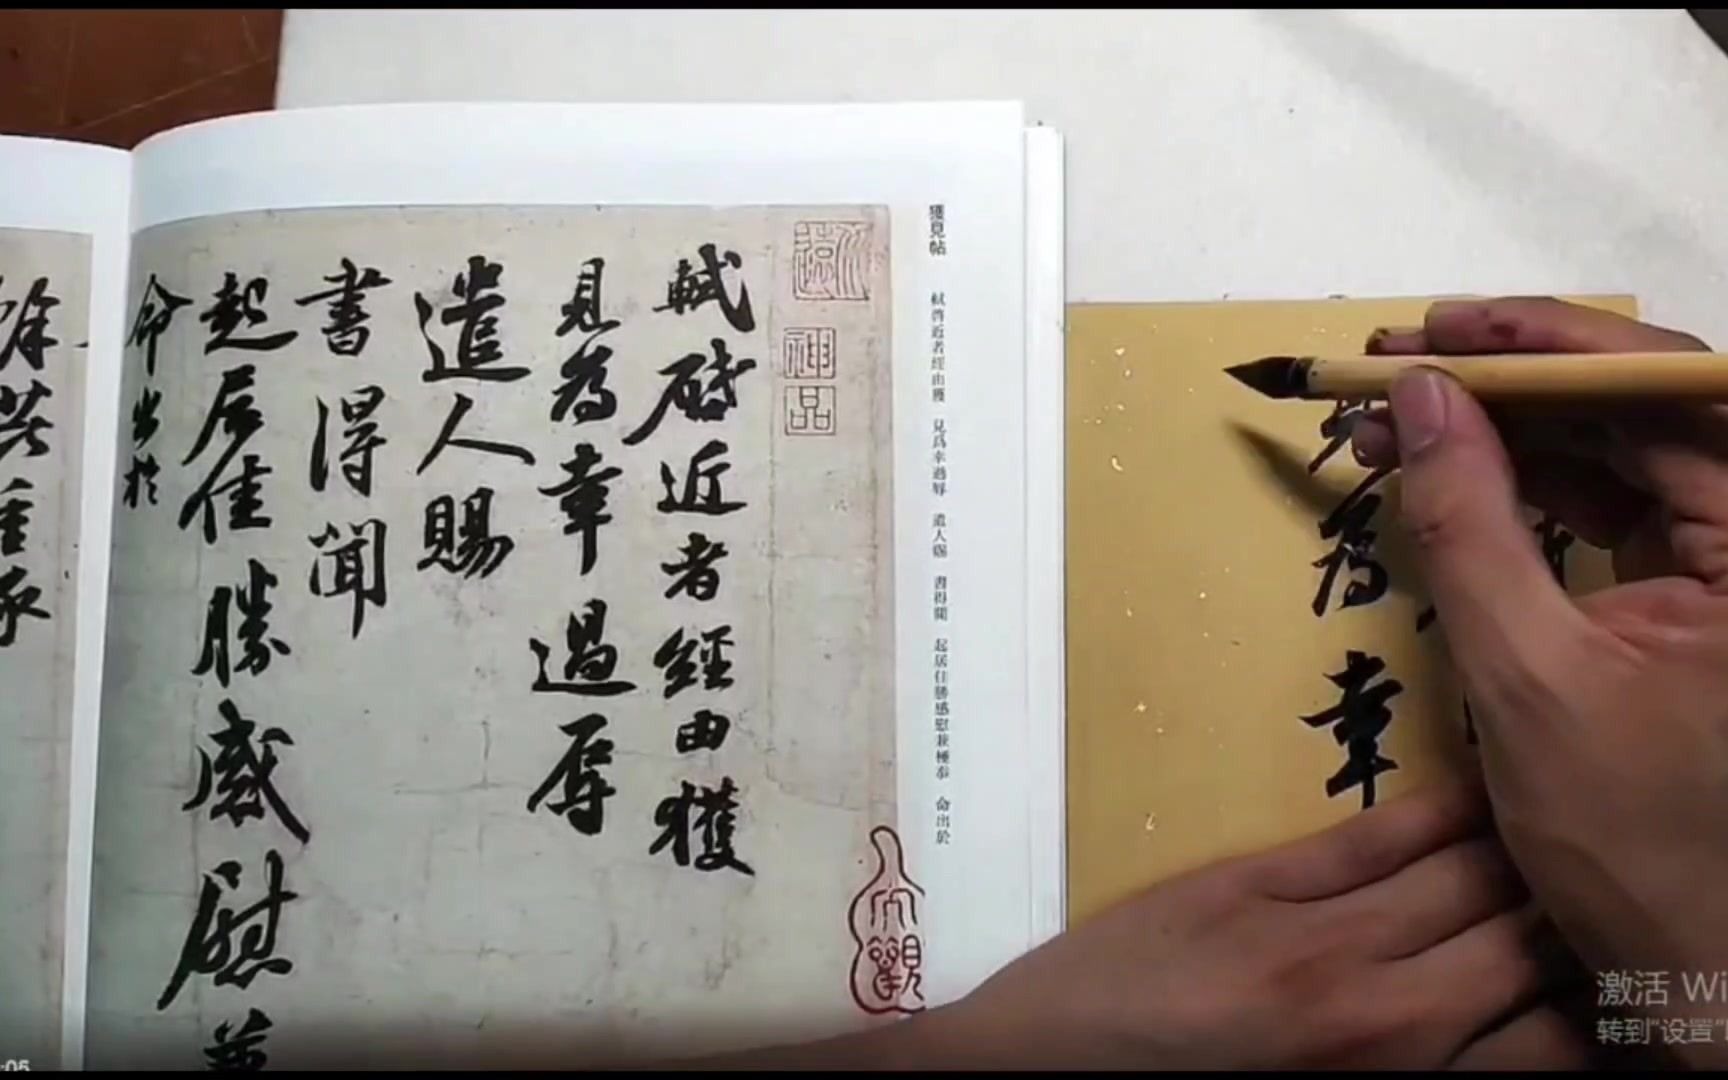 獲見帖 軾啓近者經由獲 見爲幸過辱 遣人賜 書得聞 起居佳勝感慰兼極奉 命出於
軾啓近者經由獲
見為幸過辱
遣人賜
書得聞
起居佳勝感慰兼
命出於
神品
大觀
為幸
激活 Wi
转到"设置"
:05